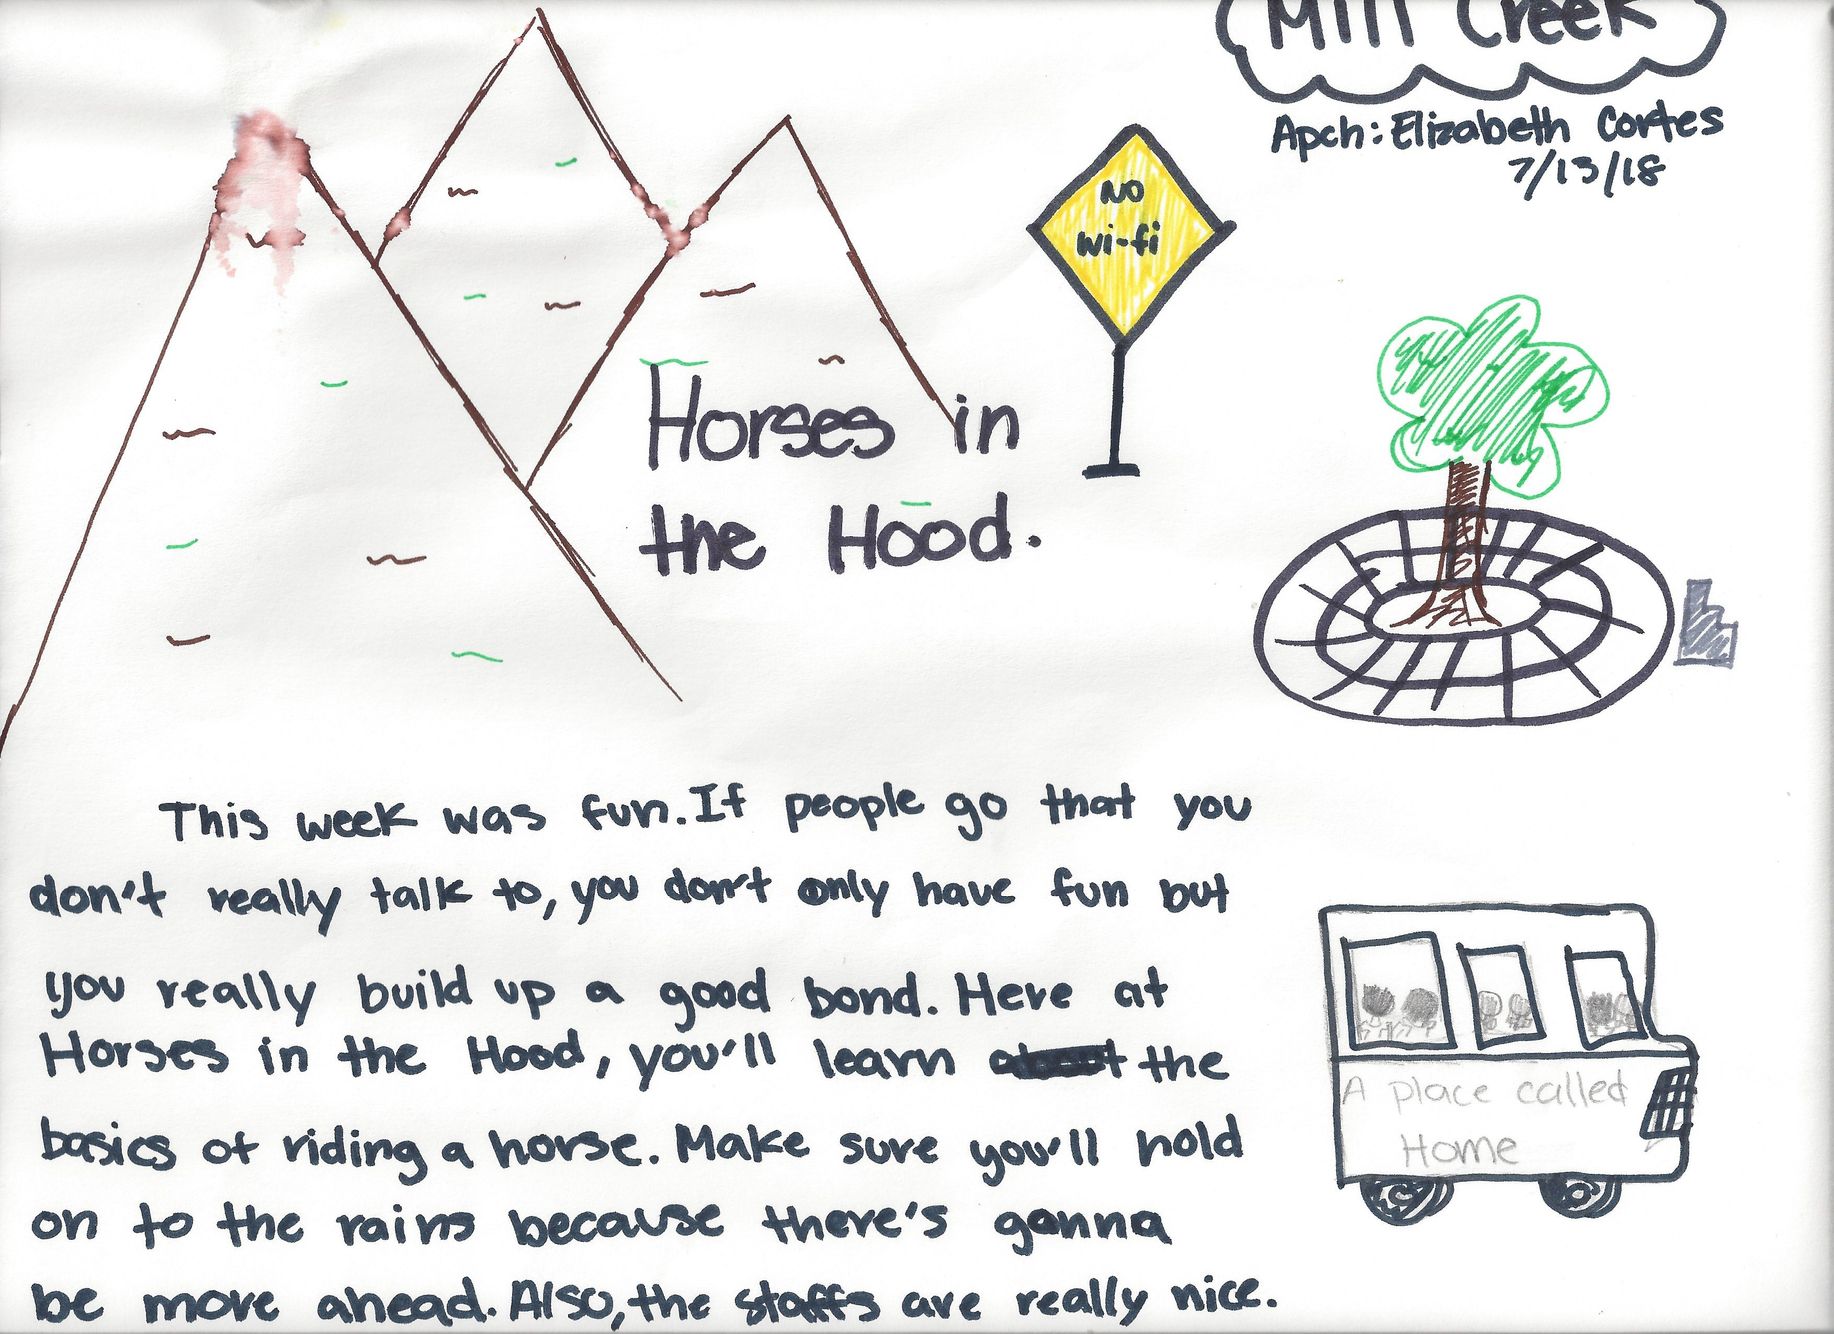 Mill Creek
Apch: Elizabeth Cortes
7/13/18
NO
Wi-fi
Horses in
the Hood.
This week was fun. If people go that you
don't really talk to, you don't only have fun but
you really build up a good bond. Here at
Horses in the Hood, you'll learn the
basics of riding a horse. Make sure you'll hold
on to the rains because there's gonna
be more ahead. Also, the staffs are really nice.
A place called
Home